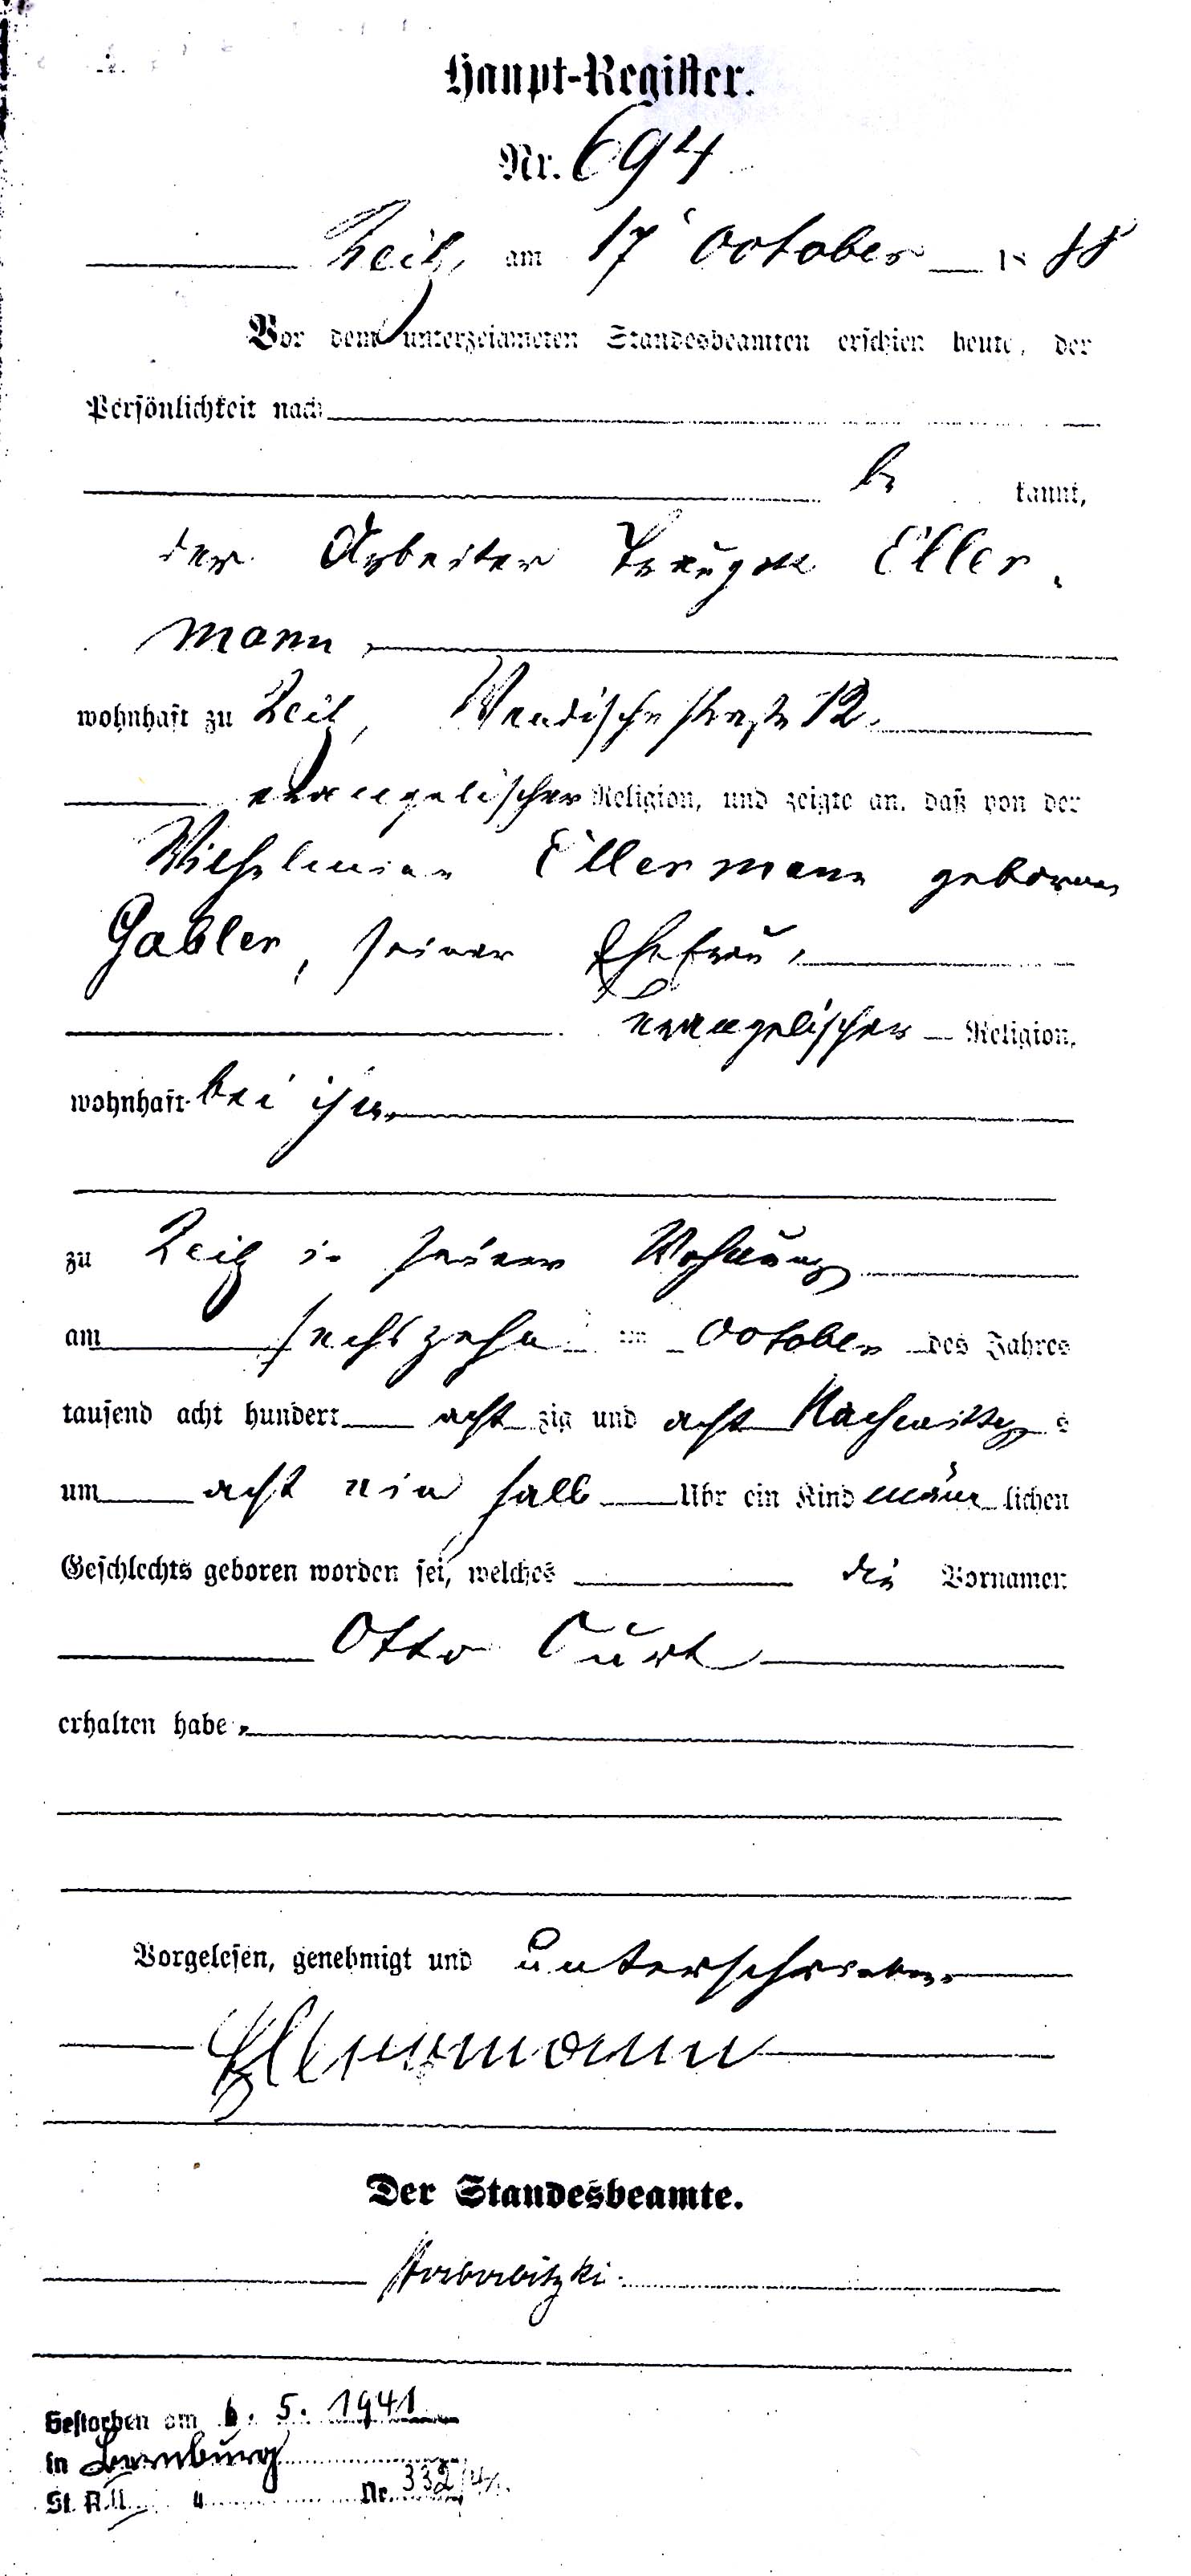 Haupt-Register.
Nr. 694
Zeitz, am 17 October 1888
Vor dem unterzeichneten Standesbeamten erschien heute, der
Persönlichkeit nach
be kannt,
der Arbeiter Traugott Eller-
mann,
wohnhaft zu Zeitz, Wendischestraße 12,
evangelischer Religion, und zeigte an, daß von der
Wilhelmine Ellermann geborene
Gabler, seiner Ehefrau,
evangelischer Religion,
wohnhaft bei ihm,
zu Zeitz in seiner Wohnung
am sechszehn ten October des Jahres
tausend acht hundert acht zig und acht Nachmittags
um acht ein halb Uhr ein Kind männlichen
Geschlechts geboren worden sei, welches die Vornamen
Otto Curt
erhalten habe.
Vorgelesen, genehmigt und unterschrieben.
Ellermann
Der Standesbeamte.
Gestorben am 6. 5. 1941
in Bernburg
St. A. II Nr. 332/41.